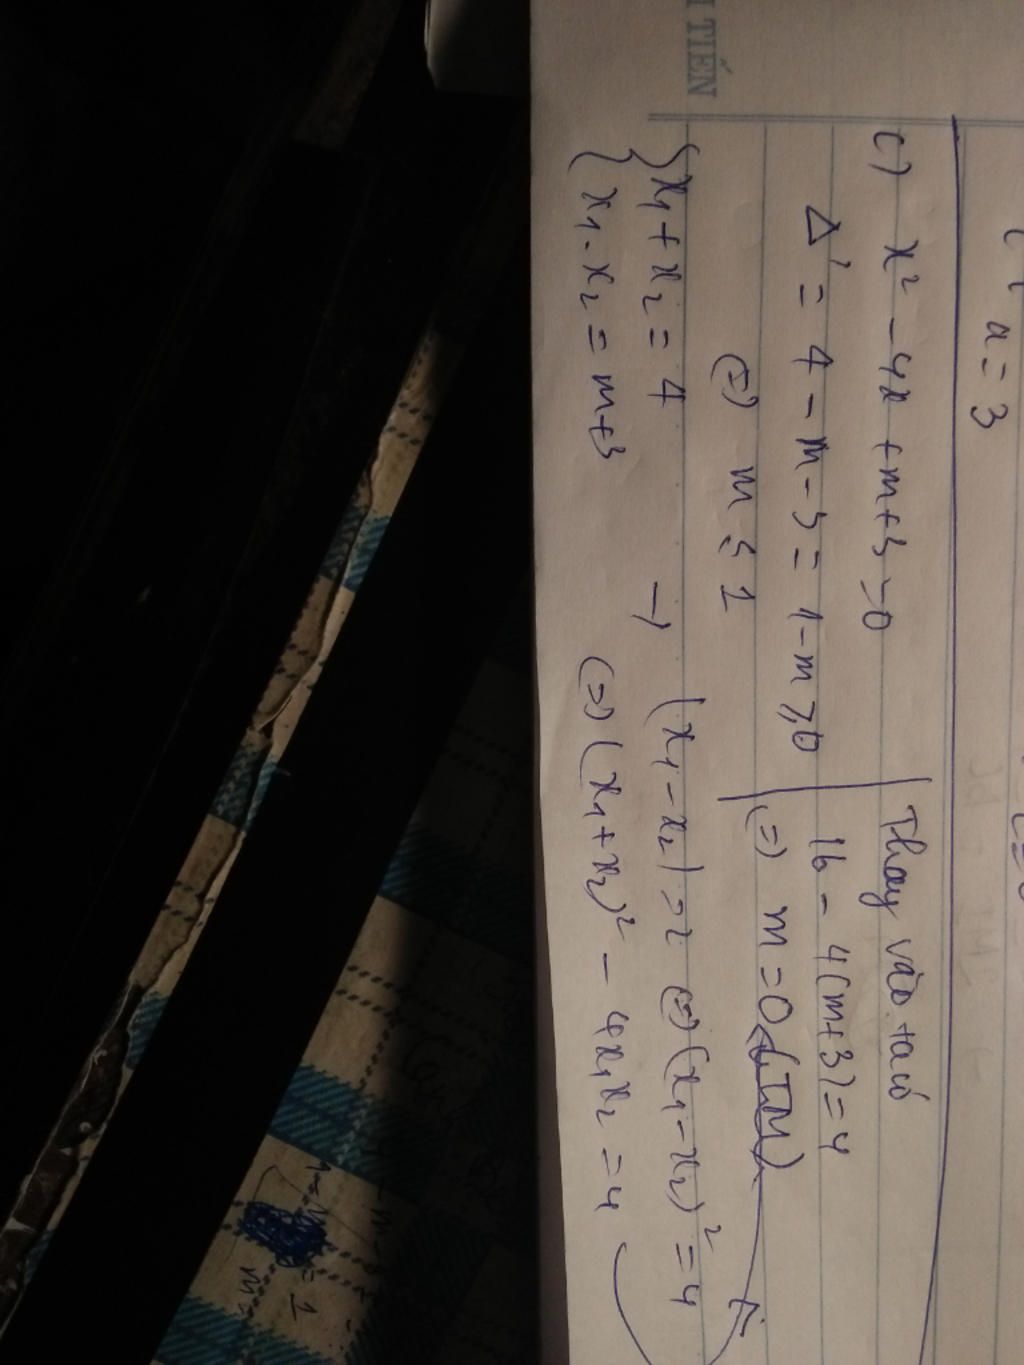 I TIẾN
a = 3
c) x² - 4x + m+3 = 0
Δ' = 4 - m - 3 = 1 - m ≥ 0
(=) m ≤ 1
{ x₁ + x₂ = 4
{ x₁ . x₂ = m+3
→ |x₁ - x₂| = 2 (=) (x₁ - x₂)² = 4
(=) (x₁ + x₂)² - 4x₁x₂ = 4
Thay vào ta có
16 - 4(m+3) = 4
(=) m = 0 (TM)